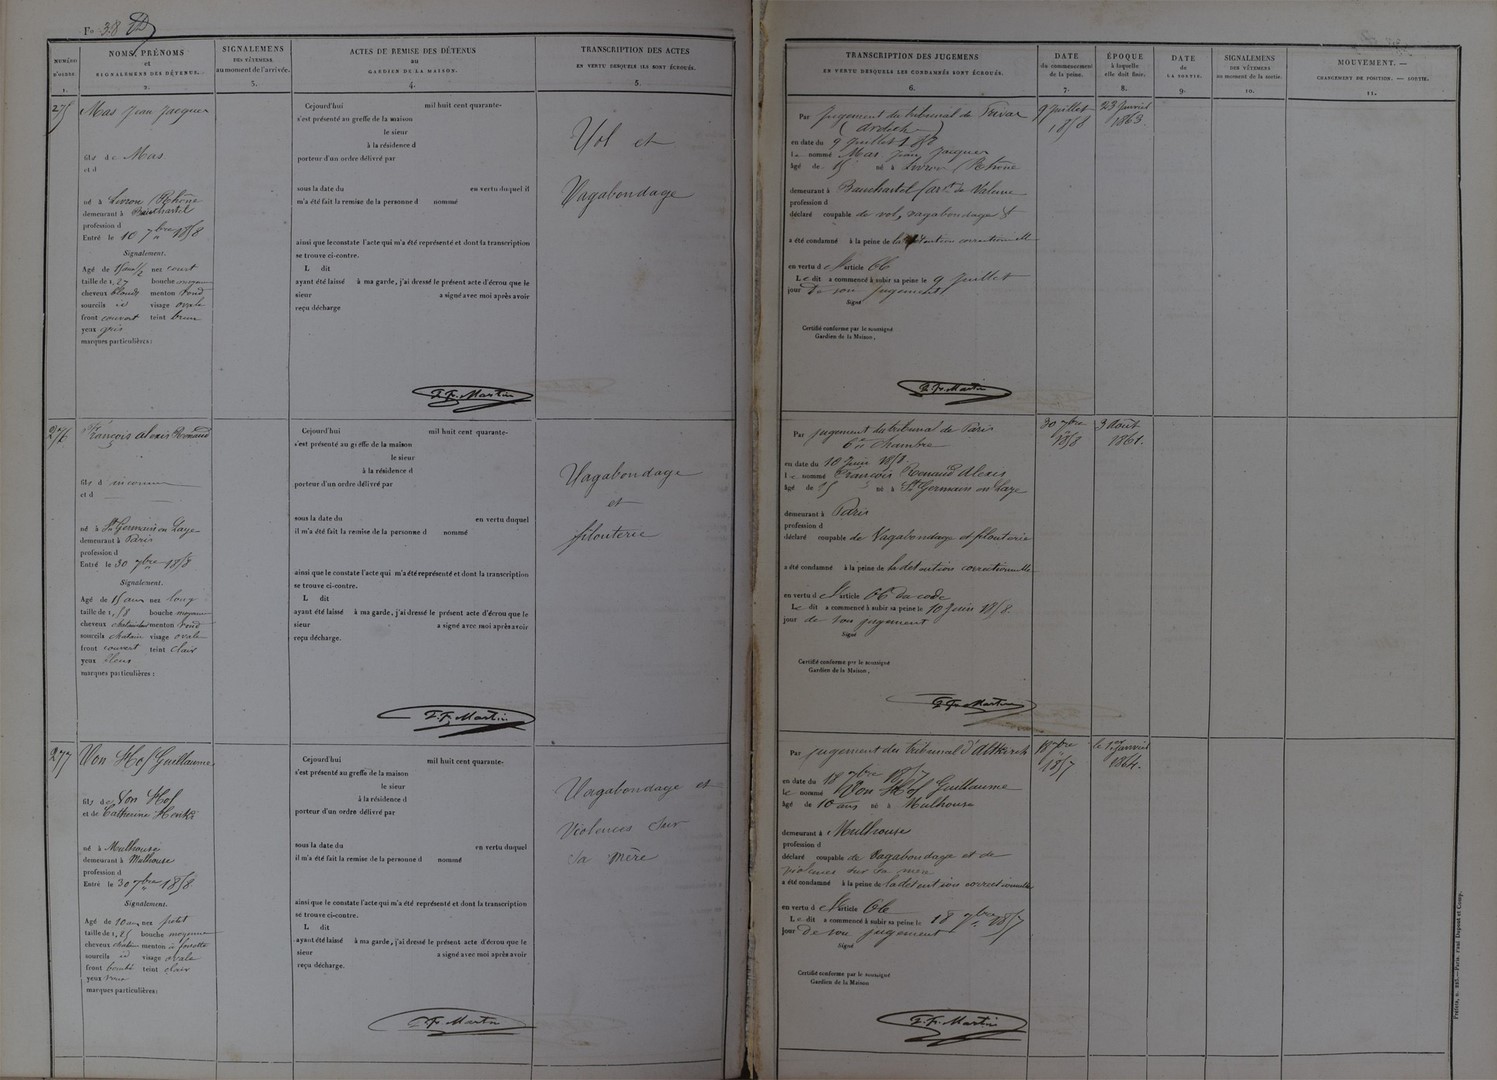 Fo 38
NUMÉRO D'ORDRE 1.
NOMS, PRÉNOMS et SIGNALEMENS DES DÉTENUS. 2.
SIGNALEMENS DES VÊTEMENS au moment de l'arrivée. 3.
ACTES DE REMISE DES DÉTENUS au GARDIEN DE LA MAISON. 4.
TRANSCRIPTION DES ACTES EN VERTU DESQUELS ILS SONT ÉCROUÉS. 5.
TRANSCRIPTION DES JUGEMENS EN VERTU DESQUELS LES CONDAMNÉS SONT ÉCROUÉS. 6.
DATE du commencement de la peine. 7.
ÉPOQUE à laquelle elle doit finir. 8.
DATE de LA SORTIE. 9.
SIGNALEMENS DES VÊTEMENS au moment de la sortie. 10.
MOUVEMENT. — CHANGEMENT DE POSITION. — SORTIE. 11.
275
Mas Jean Jacques
fils de Mas
et d
né à Livron (Rhône
demeurant à
profession d
Entré le 10 7bre 1858
Signalement.
Agé de 15 ans 1/2 nez court
taille de 1,27 bouche moye
cheveux blonds menton rond
sourcils id visage ovale
front couvert teint brun
yeux gris
marques particulières :
Cejourd'hui mil huit cent quarante-
s'est présenté au greffe de la maison
le sieur
à la résidence d
porteur d'un ordre délivré par
sous la date du en vertu duquel il
m'a été fait la remise de la personne d nommé
ainsi que le constate l'acte qui m'a été représenté et dont la transcription
se trouve ci-contre.
L dit
ayant été laissé à ma garde, j'ai dressé le présent acte d'écrou que le
sieur a signé avec moi après avoir
reçu décharge
F. F. Martin
Vol et
Vagabondage
Par jugement du tribunal de Privas
(Ardèche)
en date du 9 Juillet 1858
Le nommé Mas Jean Jacques
âgé de 15 né à Livron (Rhône
demeurant à Bauchastel (art de Valence
profession d
déclaré coupable de vol, vagabondage &
a été condamné à la peine de la détention correctionnelle
en vertu de l'article 66
Le dit a commencé à subir sa peine le 9 Juillet
jour de son jugement
Signé
Certifié conforme par le soussigné
Gardien de la Maison,
F. F. Martin
9 Juillet 1858
23 Janvier 1863.
276
François Alexis Renaud
fils d inconnu
et d
né à St Germain en Laye
demeurant à Paris
profession d
Entré le 30 7bre 1858
Signalement.
Agé de 15 ans nez long
taille de 1,58 bouche moyenne
cheveux chatain menton rond
sourcils chatain visage ovale
front couvert teint clair
yeux bleus
marques particulières :
Cejourd'hui mil huit cent quarante-
s'est présenté au greffe de la maison
le sieur
à la résidence d
porteur d'un ordre délivré par
sous la date du en vertu duquel
il m'a été fait la remise de la personne d nommé
ainsi que le constate l'acte qui m'a été représenté et dont la transcription
se trouve ci-contre.
L dit
ayant été laissé à ma garde, j'ai dressé le présent acte d'écrou que le
sieur a signé avec moi après avoir
reçu décharge.
F. F. Martin
Vagabondage
et
filouterie
Par jugement du tribunal de Paris
6e chambre
en date du 10 Juin 1858
Le nommé François Renaud Alexis
âgé de 15 né à St Germain en Laye
demeurant à Paris
profession d
déclaré coupable de Vagabondage et filouterie
a été condamné à la peine de la détention correctionnelle
en vertu de l'article 66 du code
Le dit a commencé à subir sa peine le 10 Juin 1858.
jour de son jugement
Signé
Certifié conforme par le soussigné
Gardien de la Maison,
F. F. Martin
30 7bre 1858
3 Août 1861.
277
Von Hof Guillaume
fils de Von Hof
et de Catherine
né à Mulhouse
demeurant à Mulhouse
profession d
Entré le 30 7bre 1858
Signalement.
Agé de 10 ans nez petit
taille de 1,25 bouche moyenne
cheveux chatain menton à fossette
sourcils id visage ovale
front bombé teint clair
yeux
marques particulières :
Cejourd'hui mil huit cent quarante-
s'est présenté au greffe de la maison
le sieur
à la résidence d
porteur d'un ordre délivré par
sous la date du en vertu duquel
il m'a été fait la remise de la personne d nommé
ainsi que le constate l'acte qui m'a été représenté et dont la transcription
se trouve ci-contre.
L dit
ayant été laissé à ma garde, j'ai dressé le présent acte d'écrou que le
sieur a signé avec moi après avoir
reçu décharge.
F. F. Martin
Vagabondage et
Violences sur
sa mère
Par jugement du tribunal d'Altkirch
en date du 18 7bre 1857
Le nommé Von Hof Guillaume
âgé de 10 ans né à Mulhouse
demeurant à Mulhouse
profession d
déclaré coupable de Vagabondage et de
violences sur sa mère
a été condamné à la peine de la détention correctionnelle
en vertu de l'article 66
Le dit a commencé à subir sa peine le 18 7bre 1857
jour de son jugement
Signé
Certifié conforme par le soussigné
Gardien de la Maison
F. F. Martin
18 7bre 1857
le 1er janvier 1864.